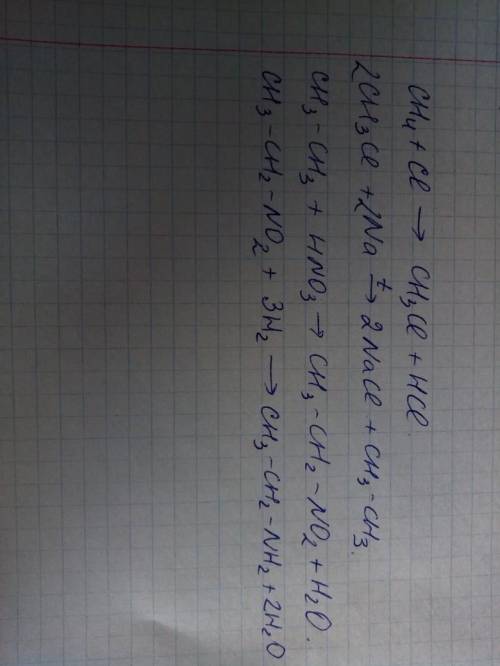 CH₄ + Cl → CH₃Cl + HCl.
2CH₃Cl + 2Na →ᵗ 2NaCl + CH₃-CH₃.
CH₃-CH₃ + HNO₃ → CH₃-CH₂-NO₂ + H₂O.
CH₃-CH₂-NO₂ + 3H₂ → CH₃-CH₂-NH₂ + 2H₂O